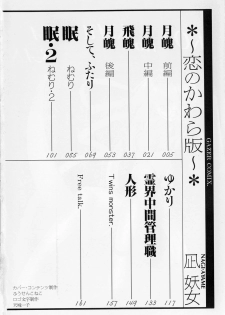 ＊～恋のかわら版～＊
GAIZER COMIX.
凪 妖女
月魄 前編 005
月魄 中編 021
飛魄 037
月魄 後編 053
そして、ふたり 069
眠 ねむり 085
眠・2 ねむり・2 101
ゆかり 117
霊界中間管理職 133
人形 149
Twins monster. 157
Free talk. 161
カバー・コンテンツ製作